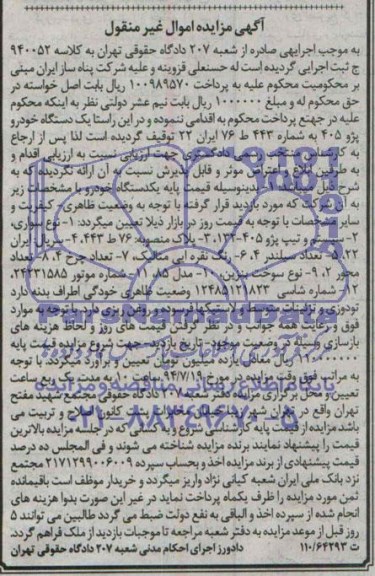 آگهی مزایده اموال غیر منقول
به موجب اجرایهی صادره از شعبه ۲۰۷ دادگاه حقوقی تهران به کلاسه ۹۴۰۰۵۲
ج ثبت اجرایی گردیده است له حسنعلی قزوینه و علیه شرکت پناه ساز ایران مبنی
بر محکومیت محکوم علیه به پرداخت ۱۰۰۹۸۹۵۷۰ ریال بابت اصل خواسته در
حق محکوم له و مبلغ ۱۰۰۰۰۰۰ ریال بابت نیم عشر دولتی نظر به اینکه محکوم
علیه در جهت پرداخت محکوم به اقدامی ننموده و در این راستا یک دستگاه خودرو
پژو ۴۰۵ به شماره ۴۴۳ ط ۷۶ ایران ۲۲ توقیف گردیده است لذا پس از ارجاع
به کارشناس منتخب دادگستری جهت ارزیابی نسبت به ارزیابی اقدام و
به طرفین ابلاغ و اعتراض موثر و قابل پذیرش نسبت به آن ارائه نگردیده که به
شرح ذیل میباشد: بدینوسیله قیمت پایه یکدستگاه خودرو با مشخصات زیر
به آن شرکت که مورد بازدید قرار گرفته با توجه به وضعیت ظاهری، کیفیت و
سایر مشخصات با توجه به قیمت روز در بازار ذیلا تعیین میگردد: ۱- نوع سواری،
۲- سیستم و تیپ پژو ۴۰۵، ۳- پلاک منصوبه: ۷۶ ط ۴۴۳ ایران
۲۲، ۵- تعداد سیلندر ۴، ۶- رنگ نقره ایی متالیک، ۷- تعداد چرخ ۴، ۸- تعداد
محور ۲، ۹- نوع سوخت بنزین، ۱۰- مدل ۸۵، ۱۱- شماره موتور
۱۲- شماره شاسی وضعیت ظاهری خودگی اطراف بدنه دارد
تودوزی و تزئینات متوسط لاستیکها فرسوده روغن ریزی دارد با توجه به موارد
فوق و رعایت همه جوانب و در نظر گرفتن قیمت های روز و لحاظ هزینه های
بازسازی وسیله در وضعیت موجود- تاریخ بازدید- جهت شروع مزایده قیمت پایه
ریال معادل یازده میلیون تومان تعیین و برآورد میگردد. با توجه
به مراتب فوق وقت مزایده در مورخ ۹۴/۷/۱۹ ساعت ۱۰ به مدت یک ربع ساعت
تعیین و محل برگزاری مزایده دفتر شعبه ۲۰۷ دادگاه حقوقی مجتمع شهید مفتح
تهران واقع در تهران شهر زیبا خیابان مخابرات پشت کانون اصلاح و تربیت می
باشد مزایده از قیمت پایه کارشناسی شروع و به کسانی که در جلسه مزایده بالاترین
قیمت را پیشنهاد نمایند برنده مزایده شناخته می شوند و فی المجلس ده درصد
قیمت پیشنهادی از برنده مزایده اخذ و بحساب سپرده ۲۱۷۱۲۹۹۰۰۶۰۰۹ مجتمع
نزد بانک ملی ایران شعبه کیانی نژاد واریز میگردد و خریدار موظف است باقیمانده
ثمن مورد مزایده را ظرف یکماه پرداخت نماید در غیر این صورت بدوا هزینه های
انجام شده از سپرده اخذ و الباقی به نفع دولت ضبط می گردد طالبین می توانند ۵
روز قبل از موعد مزایده به دفتر شعبه مراجعه تا موجبات بازدید از ملک فراهم گردد.
ت ۱۱۰/۶۴۲۹۳ دادورز اجرای احکام مدنی شعبه ۲۰۷ دادگاه حقوقی تهران
پایگاه اطلاع رسانی مناقصه و مزایده
۰۲۱-۸۸۳۴۹۶۷۰-۵